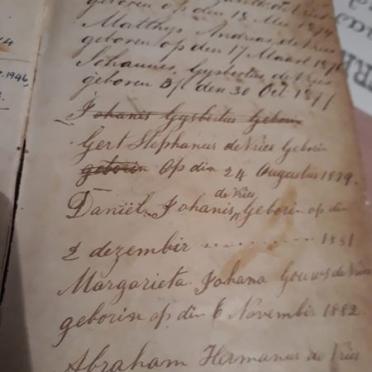 geboren op den 13 Mei 1874
Matthys Andries de Vries
geboren op den 17 Maart 1876
Johannes Gysbertus de Vries
geboren op den 30 Oct 1877
Johanis Gysbertus Geborin
Gert Stephanus de Vries Geborin
geborin Op din 24 Augustus 1879.
de Vries
Daniël Johanis, Geborin op din
2 dezembir 1881
Margarieta Johana Gouws de Vries
geborin op din 6 Novembir 1882
Abraham Hermanus de Vries
1946